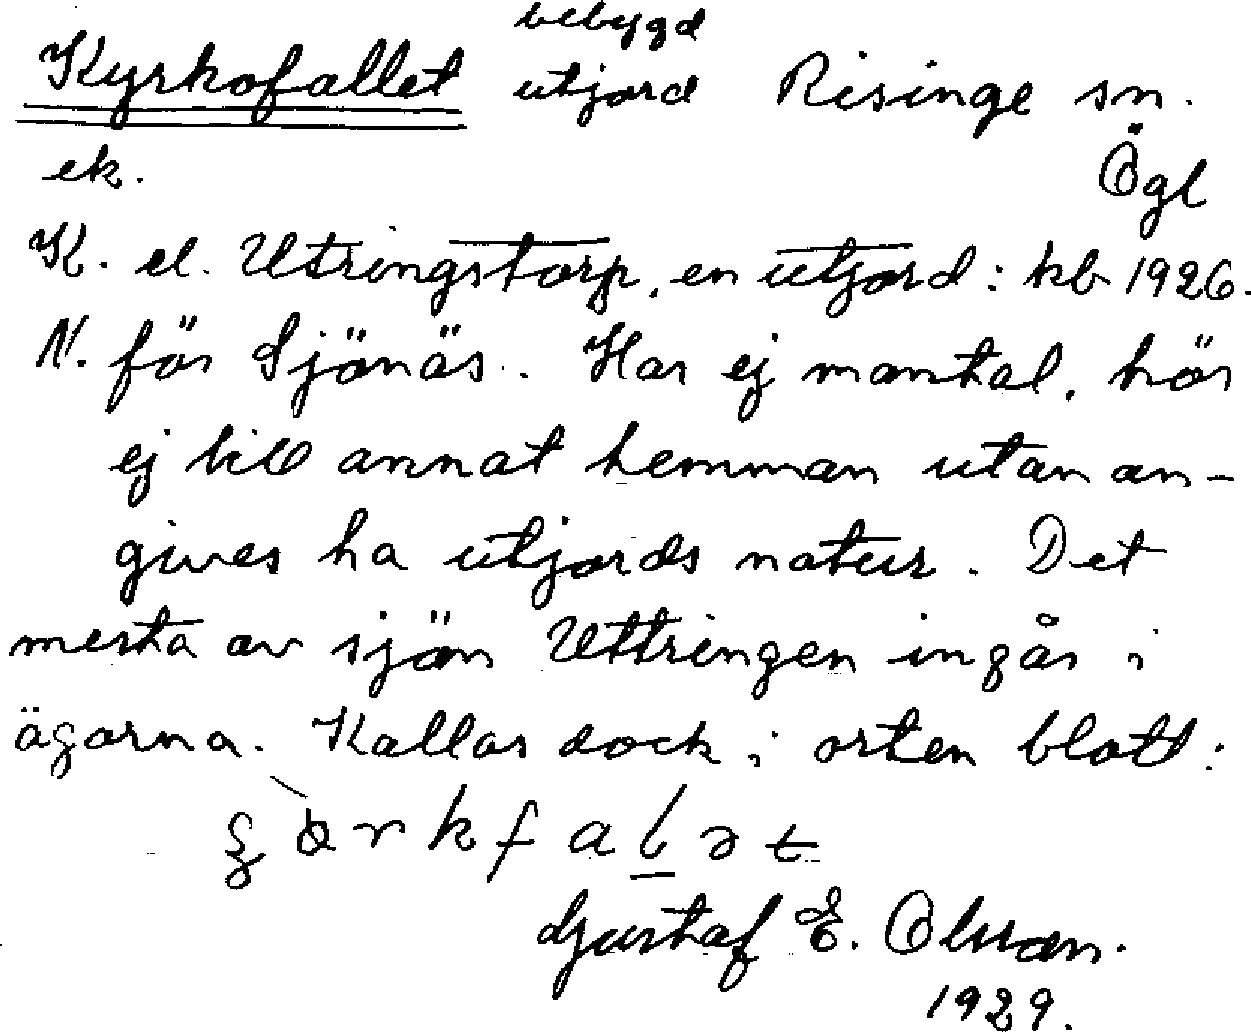 bebygd
Kyrkofallet utjord Risinge sn.
ek. Ögl
K. el. Utringstorp, en utjord: kb 1926.
N. för Sjönäs. Har ej mantal, hör
ej till annat hemman utan an-
gives ha utjords natur. Det
mesta av sjön Uttringen ingår i
ägorna. Kallas dock i orten blott:
Gustaf E. Olsson.
1929.